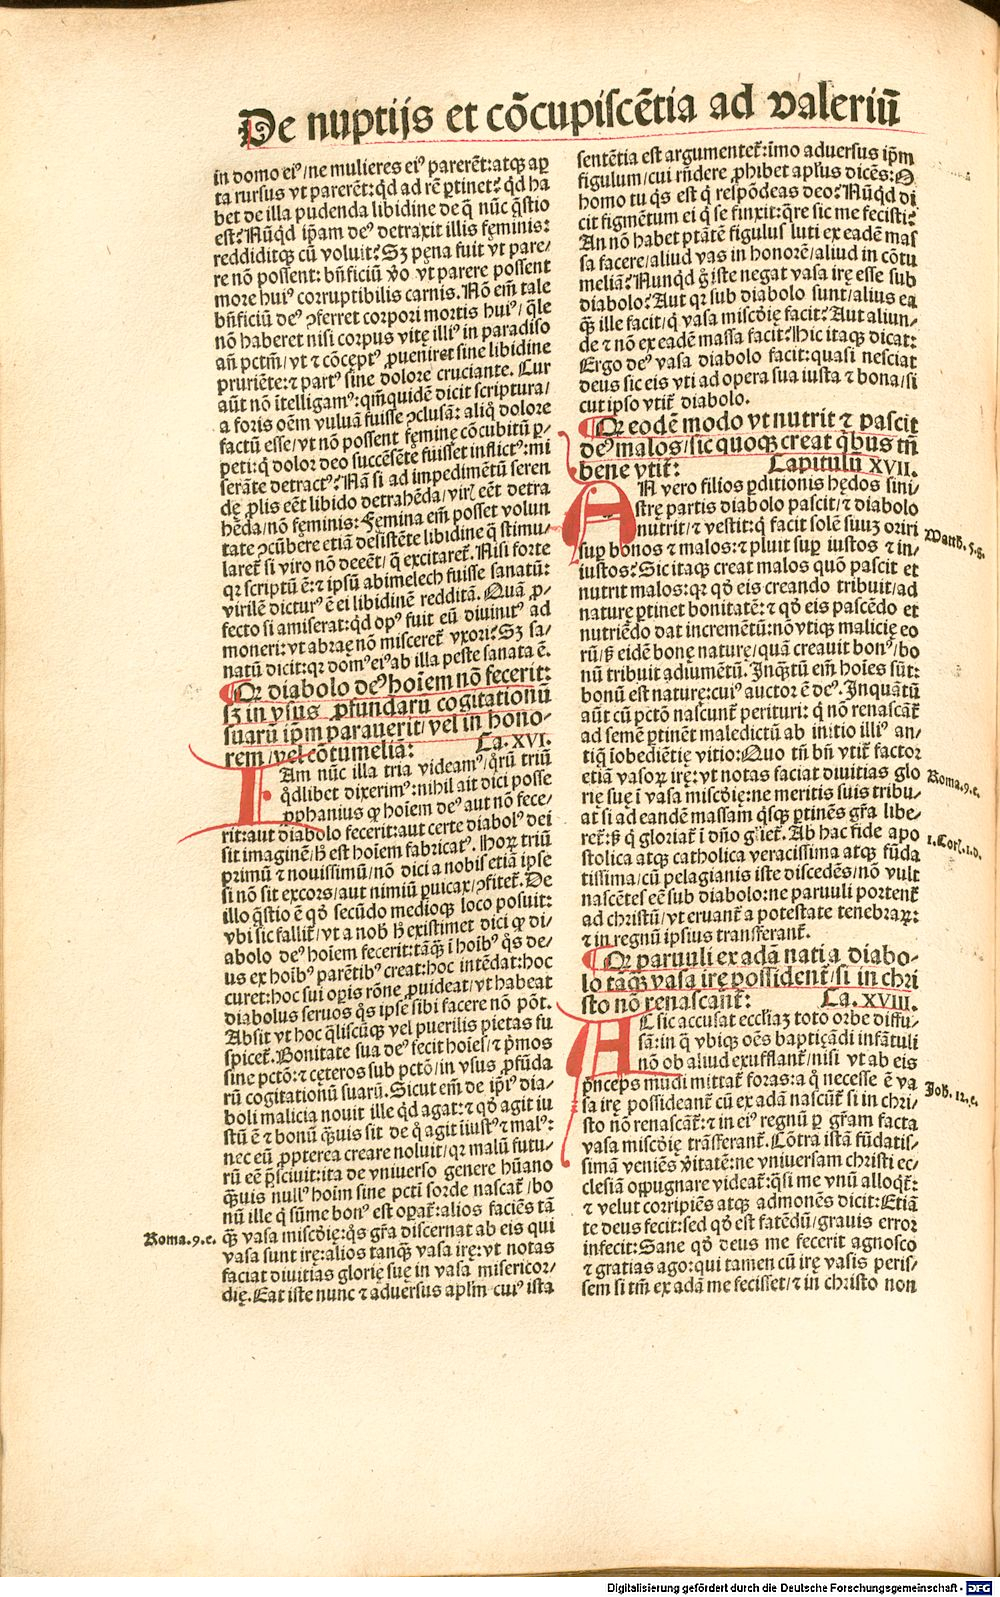 De nuptijs et cōcupiscētia ad valeriū
in domo eiꝰ/ne mulieres eiꝰ parerēt:atqꝫ aꝑ
ta rursus vt parerēt:qd ad rē ꝑtinet? qd ha
bet de illa pudenda libidine de q̄ nūc q̄stio
est? Nūqd ip̄am deꝰ detraxit illis fęminis:
reddiditqꝫ cū voluit? Sꝫ pęna fuit vt pare/
re nō possent: bn̄ficiū ꝟo vt parere possent
more huiꝰ corruptibilis carnis. Nō em̄ tale
bn̄ficiū deꝰ ꝯferret corpori mortis huiꝰ/ q̄le
nō haberet nisi corpus vitę illiꝰ in paradiso
an̄ pctm̄/vt ⁊ cōceptꝰ ꝓueniret sine libidine
pruriēte:⁊ partꝰ sine dolore cruciante. Cur
aūt nō ītelligamꝰ:qm̄quidē dicit scriptura/
a foris oēm vuluā fuisse ꝯclusā: aliq̊ dolore
factū esse/vt nō possent fęminę cōcubitū ꝑ/
peti:q̊ dolor deo succēsēte fuisset inflictꝰ:mi
serāte detractꝰ? Nā si ad impedimētū seren
dę ꝓlis eēt libido detrahēda/virꝭ eēt detra
hēda/nō fęminis: Fęmina em̄ posset volun
tate ꝯcūbere etiā desistēte libidine q̄ stimu/
laret̄ si viro nō deeēt/ q̄ excitaret̄. Nisi forte
qꝛ scriptū ē:⁊ ipsū abimelech fuisse sanatū:
virilē dicturꝰ ē ei libidinē redditā. Quā ꝓ/
fecto si amiserat:qd opꝰ fuit eū diuinitꝰ ad
moneri:vt abraę nō misceret̄ vxori? Sꝫ sa/
natū dicit:qꝛ domꝰ eiꝰ ab illa peste sanata ē.
¶Qꝛ diabolo deꝰ hoīem nō fecerit:
sꝫ in vsus ꝓfundarū cogitationū
suarū ip̄m parauerit/vel in hono-
rem/vel cōtumeliā: Ca. XVI.
IAm nūc illa tria videamꝰ/ q̊rū triū
q̊dlibet dixerimꝰ:nihil ait dici posse
ꝓphanius ꝙ hoīem deꝰ aut nō fece/
rit:aut diabolo fecerit:aut certe diabolꝰ dei
sit imaginē/h̄ est hoīem fabricatꝰ. Hoꝝ triū
primū ⁊ nouissimū/nō dici a nobis etiā ipse
si nō sit excors/aut nimiū ꝑuicax/ꝯfitet̄. De
illo q̄stio ē qd̄ secūdo medioqꝫ loco posuit:
vbi sic fallit̄/vt a nob̄ h̄ existimet dici ꝙ di/
abolo deꝰ hoīem fecerit:tāq̄ī hoībꝰ q̊s de/
us ex hoībꝰ parētibꝰ creat:hoc intēdat:hoc
curet:hoc sui oꝑis rōne ꝓuideat/vt habeat
diabolus seruos q̊s ipse sibi facere nō pōt.
Absit vt hoc q̄liscūqꝫ vel puerilis pietas su
spicet̄. Bonitate sua deꝰ fecit hoīes/⁊ p̄mos
sine pctō:⁊ cęteros sub pctō/in vsus ꝓfūda
rū cogitationū suarū. Sicut em̄ de ip̄iꝰ dia/
boli malicia nouit ille qd agat:⁊ qd̄ agit iu
stū ē ⁊ bonū q̄uis sit de q̊ agit īiustꝰ ⁊ malꝰ:
nec eū ꝓpterea creare noluit/qꝛ malū futu/
rū eē p̄sciuit:ita de vniuerso genere hūano
q̄uis nullꝰ hoīm sine pctī sorde nascat̄/bo
nū ille q̊ sūme bonꝰ est oꝑat̄:alios faciēs tā
q̄ vasa miscdīę:q̊s gr̄a discernat ab eis qui
vasa sunt irę:alios tanq̄ vasa irę:vt notas
faciat diuitias glorię suę in vasa misericor/
dię. Eat iste nunc ⁊ aduersus apl̄m cuiꝰ ista
Roma.9.e.
sentētia est argumentet̄:īmo aduersus ip̄m
figulum/cui rn̄dere ꝓhibet apl̄us dicēs: O
homo tu q̊s est q̊ respōdeas deo? Nūqd di
cit figmētum ei q̊ se finxit:q̄re sic me fecisti?
An nō habet ptātē figulus luti ex eadē mas
sa facere/aliud vas in honorē/aliud in cōtu
meliā? Nunqd g̊ iste negat vasa irę esse sub
diabolo? Aut qꝛ sub diabolo sunt/alius ea
q̄ ille facit/q̊ vasa miscdīę facit? Aut aliun/
de ⁊ nō ex eadē massa facit? Hic itaqꝫ dicat:
Ergo deꝰ vasa diabolo facit:quasi nesciat
deus sic eis vti ad opera sua iusta ⁊ bona/si
cut ipso vtit̄ diabolo.
¶Qꝛ eodē modo vt nutrit ⁊ pascit
deꝰ malos/sic quoqꝫ creat q̊bus tn̄
bene vtit̄: Capitulū XVII.
AN vero filios ꝑditionis hędos sini/
strę partis diabolo pascit/⁊ diabolo
nutrit/⁊ vestit:q̊ facit solē suuꝫ oriri
suꝑ bonos ⁊ malos:⁊ pluit suꝑ iustos ⁊ in/
iustos? Sic itaqꝫ creat malos quō pascit et
nutrit malos:qꝛ qd̄ eis creando tribuit/ad
naturę ꝑtinet bonitatē:⁊ qd̄ eis pascēdo et
nutriēdo dat incremētū:nō vtiqꝫ malicię eo
rū/sꝫ eidē bonę naturę/quā creauit bonꝰ/bo
nū tribuit adiumētū. Inq̄tū em̄ hoīes sūt:
bonū est naturę:cuiꝰ auctor ē deꝰ. Inquātū
aūt cū pctō nascunt̄ perituri: q̊ nō renascāt̄
ad semē ꝑtinēt maledictū ab initio illiꝰ an/
tiq̄ īobedietię vitio: Quo tn̄ bn̄ vtit̄ factor
etiā vasoꝝ irę:vt notas faciat diuitias glo
rię suę ī vasa miscdīę:ne meritis suis tribu/
at si ad eandē massam q̊sqꝫ ꝑtinēs gr̄a libe/
ret̄:sꝫ q̊ gloriat̄ ī dn̄o gliet̄. Ab hac fide apo
stolica atqꝫ catholica veracissima atqꝫ fūda
tissima/cū pelagianis iste discedēs/nō vult
nascētes eē sub diabolo:ne paruuli portent̄
ad christū/vt eruant̄ a potestate tenebraꝝ:
⁊ in regnū ipsius transferant̄.
¶Qꝛ paruuli ex adā nati a diabo-
lo tāq̄ vasa irę possident̄/si in chri
sto nō renascant̄: Ca. XVIII.
AC sic accusat eccl̄iaꝫ toto orbe diffu/
sā:in q̄ vbiqꝫ oēs baptiçādi infātuli
nō ob aliud exufflant̄/nisi vt ab eis
p̄nceps mūdi mittat̄ foras:a q̊ necesse ē va
sa irę possideant̄ cū ex adā nascūt̄ si in chri/
sto nō renascāt̄:⁊ in eiꝰ regnū ꝑ gr̄am facta
vasa miscdīę trāsferant̄. Cōtra istā fūdatis/
simā veniēs ꝟitatē:ne vniuersam christi ec/
clesiā oppugnare videat̄:q̄si me vnū alloqt̄:
⁊ velut corripiēs atqꝫ admonēs dicit: Etiā
te deus fecit:sed qd̄ est fatēdū/grauis error
infecit: Sane qd̄ deus me fecerit agnosco
⁊ gratias ago:qui tamen cū irę vasis peris/
sem si tm̄ ex adā me fecisset/⁊ in christo non
Matth.5.g.
Roma.9.e.
1.Corꝭ.1.d.
Joh.12.e.
Digitalisierung gefördert durch die Deutsche Forschungsgemeinschaft - DFG